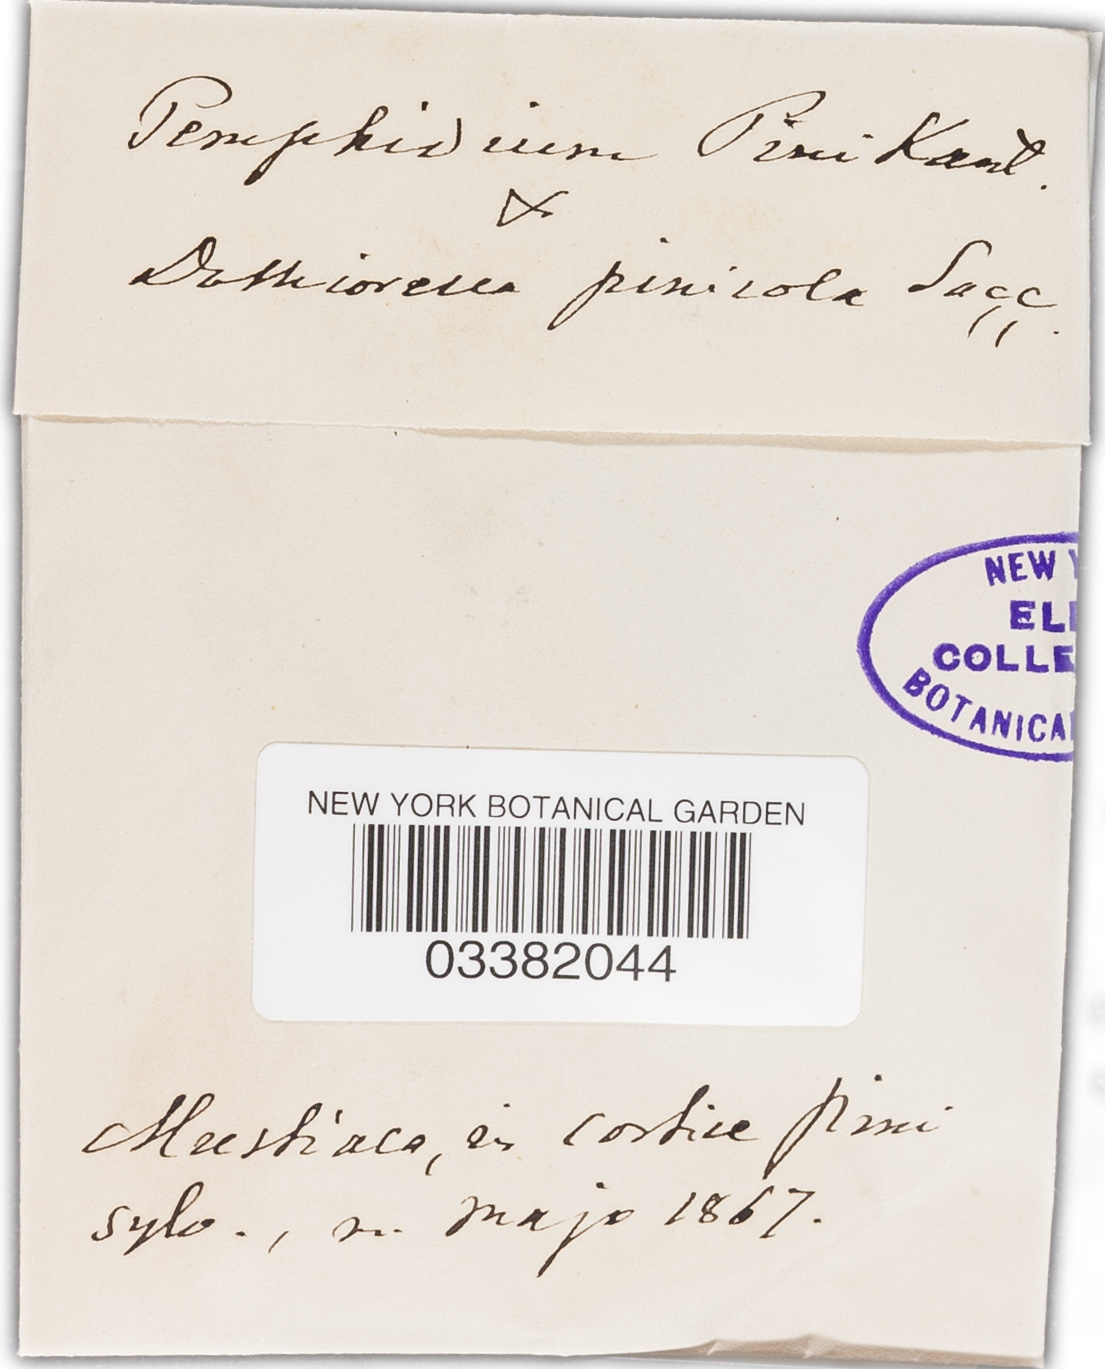 Pemphidium Pini Karst.
&
Dothiorella pinicola Sacc.
NEW Y
ELL
COLLE
BOTANICAL
NEW YORK BOTANICAL GARDEN
03382044
Mustiala, in cortice pini
sylv., m. majo 1867.